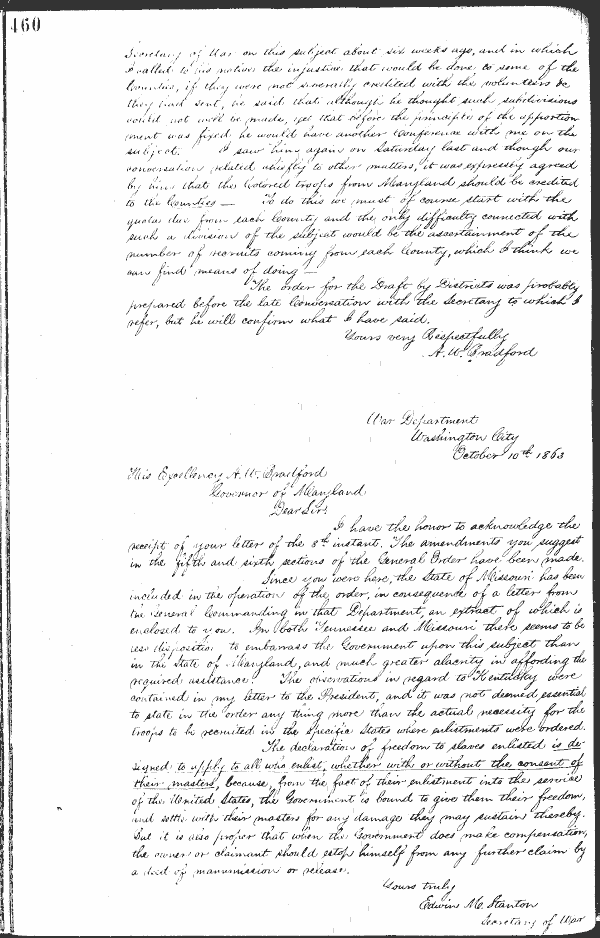 460
Secretary of War on this subject about six weeks ago, and in which
I called to his notice the injustice that would be done to some of the
Counties, if they were not severally credited with the volunteers &c
they had sent, he said that although he thought such subdivisions
could not well be made, yet that before the principle of the apportion
ment was fixed he would have another Conference with me on the
subject. I saw him again on Saturday last and though our
conversation related chiefly to other matters, it was expressly agreed
by him that the Colored troops from Maryland should be credited
to the Counties — To do this we must of course start with the
quota due from each County and the only difficulty connected with
such a division of the subject would be the ascertainment of the
number of recruits coming from each County, which I think we
can find means of doing —
The order for the Draft by Districts was probably
prepared before the late Conversation with the Secretary to which I
refer, but he will confirm what I have said.
Yours very Respectfully
A. W. Bradford
War Department
Washington City
October 10th 1863
His Excellency A. W. Bradford
Governor of Maryland
Dear Sir:
I have the honor to acknowledge the
receipt of your letter of the 8th instant. The amendments you suggest
in the fifth and sixth sections of the General Order have been made.
Since you were here, the State of Missouri has been
included in the operation of the order, in consequence of a letter from
the General Commanding in that Department, an extract of which is
enclosed to you. In both Tennessee and Missouri there seems to be
less disposition to embarrass the Government upon this subject than
in the State of Maryland, and much greater alacrity in affording the
required assistance. The observations in regard to Kentucky were
contained in my letter to the President, and it was not deemed essential
to state in the order any thing more than the actual necessity for the
troops to be recruited in the specific States where enlistments were ordered.
The declaration of freedom to slaves enlisted is de-
signed to apply to all who enlist, whether with or without the consent of
their masters, because, from the fact of their enlistment into the service
of the United States, the Government is bound to give them their freedom,
and settle with their masters for any damage they may sustain thereby.
But it is also proper that when the Government does make compensation,
the owner or claimant should estop himself from any further claim by
a deed of manumission or release.
Yours truly
Edwin M. Stanton
Secretary of War